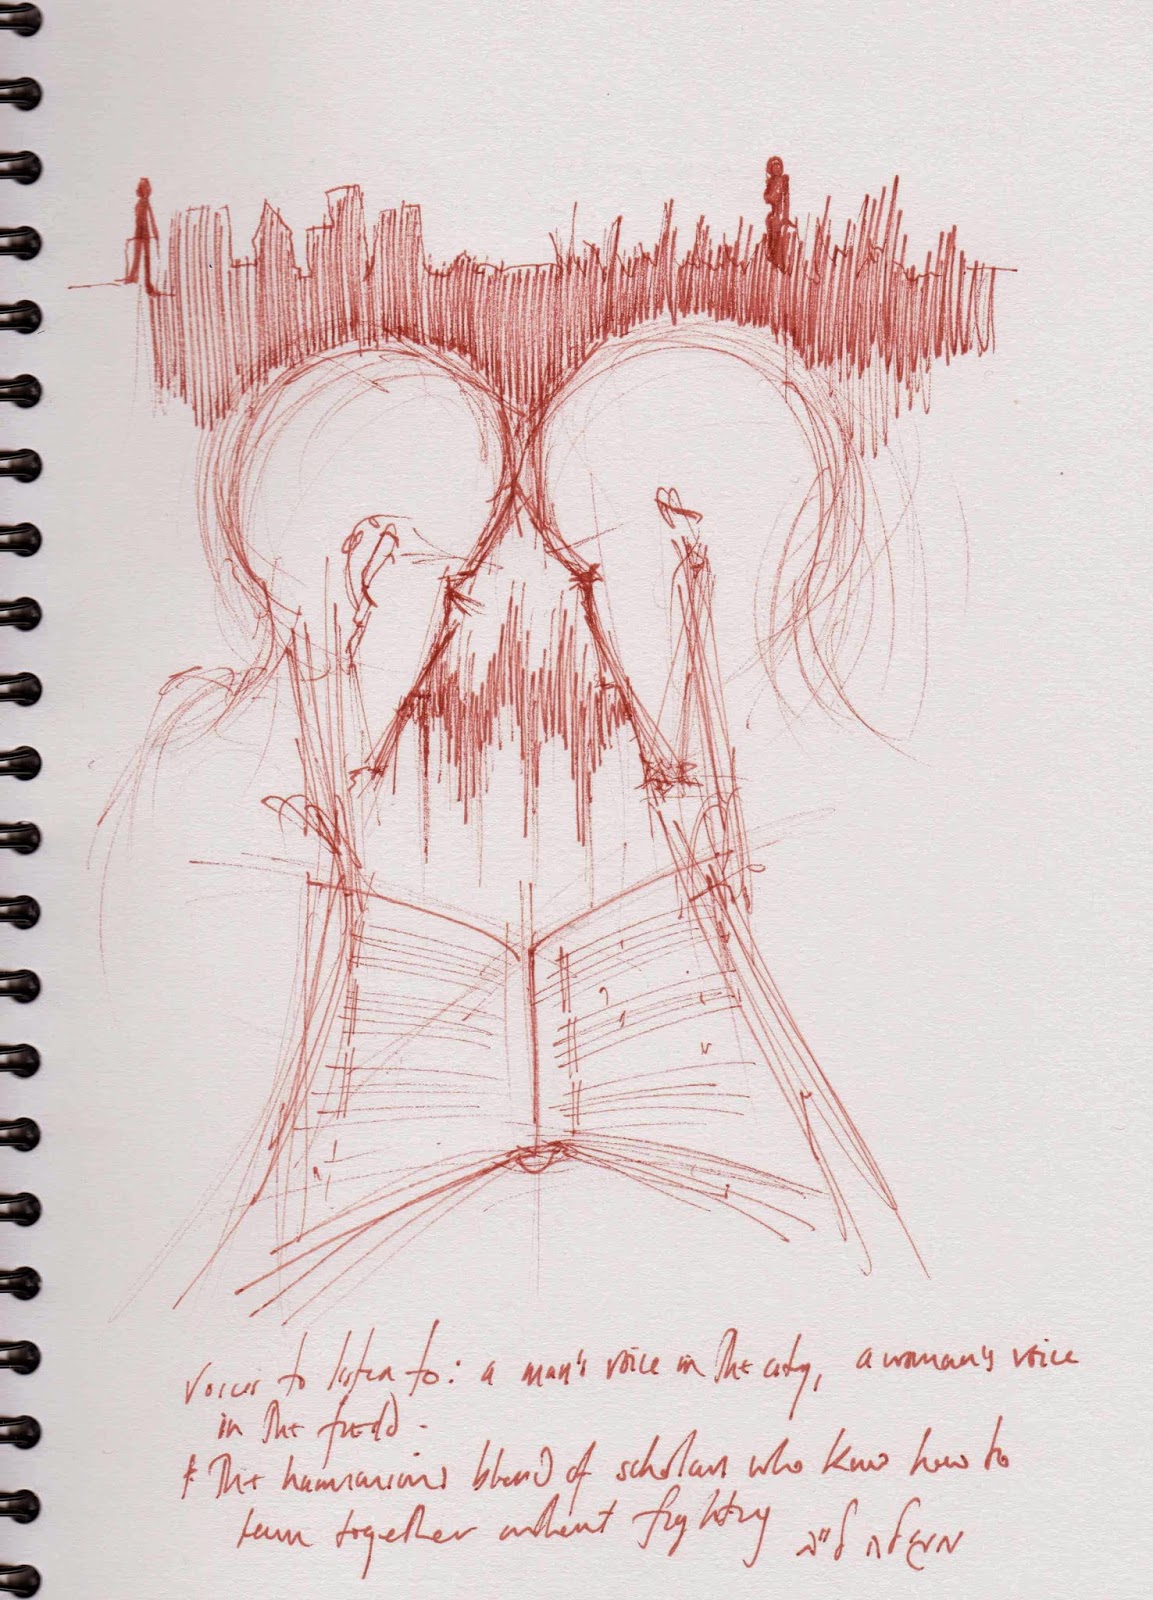 Voices to listen to: a man's voice in the city, a woman's voice
in the field -
* The harmonious blend of scholars who know how to
learn together without fighting מגילה ל״ב